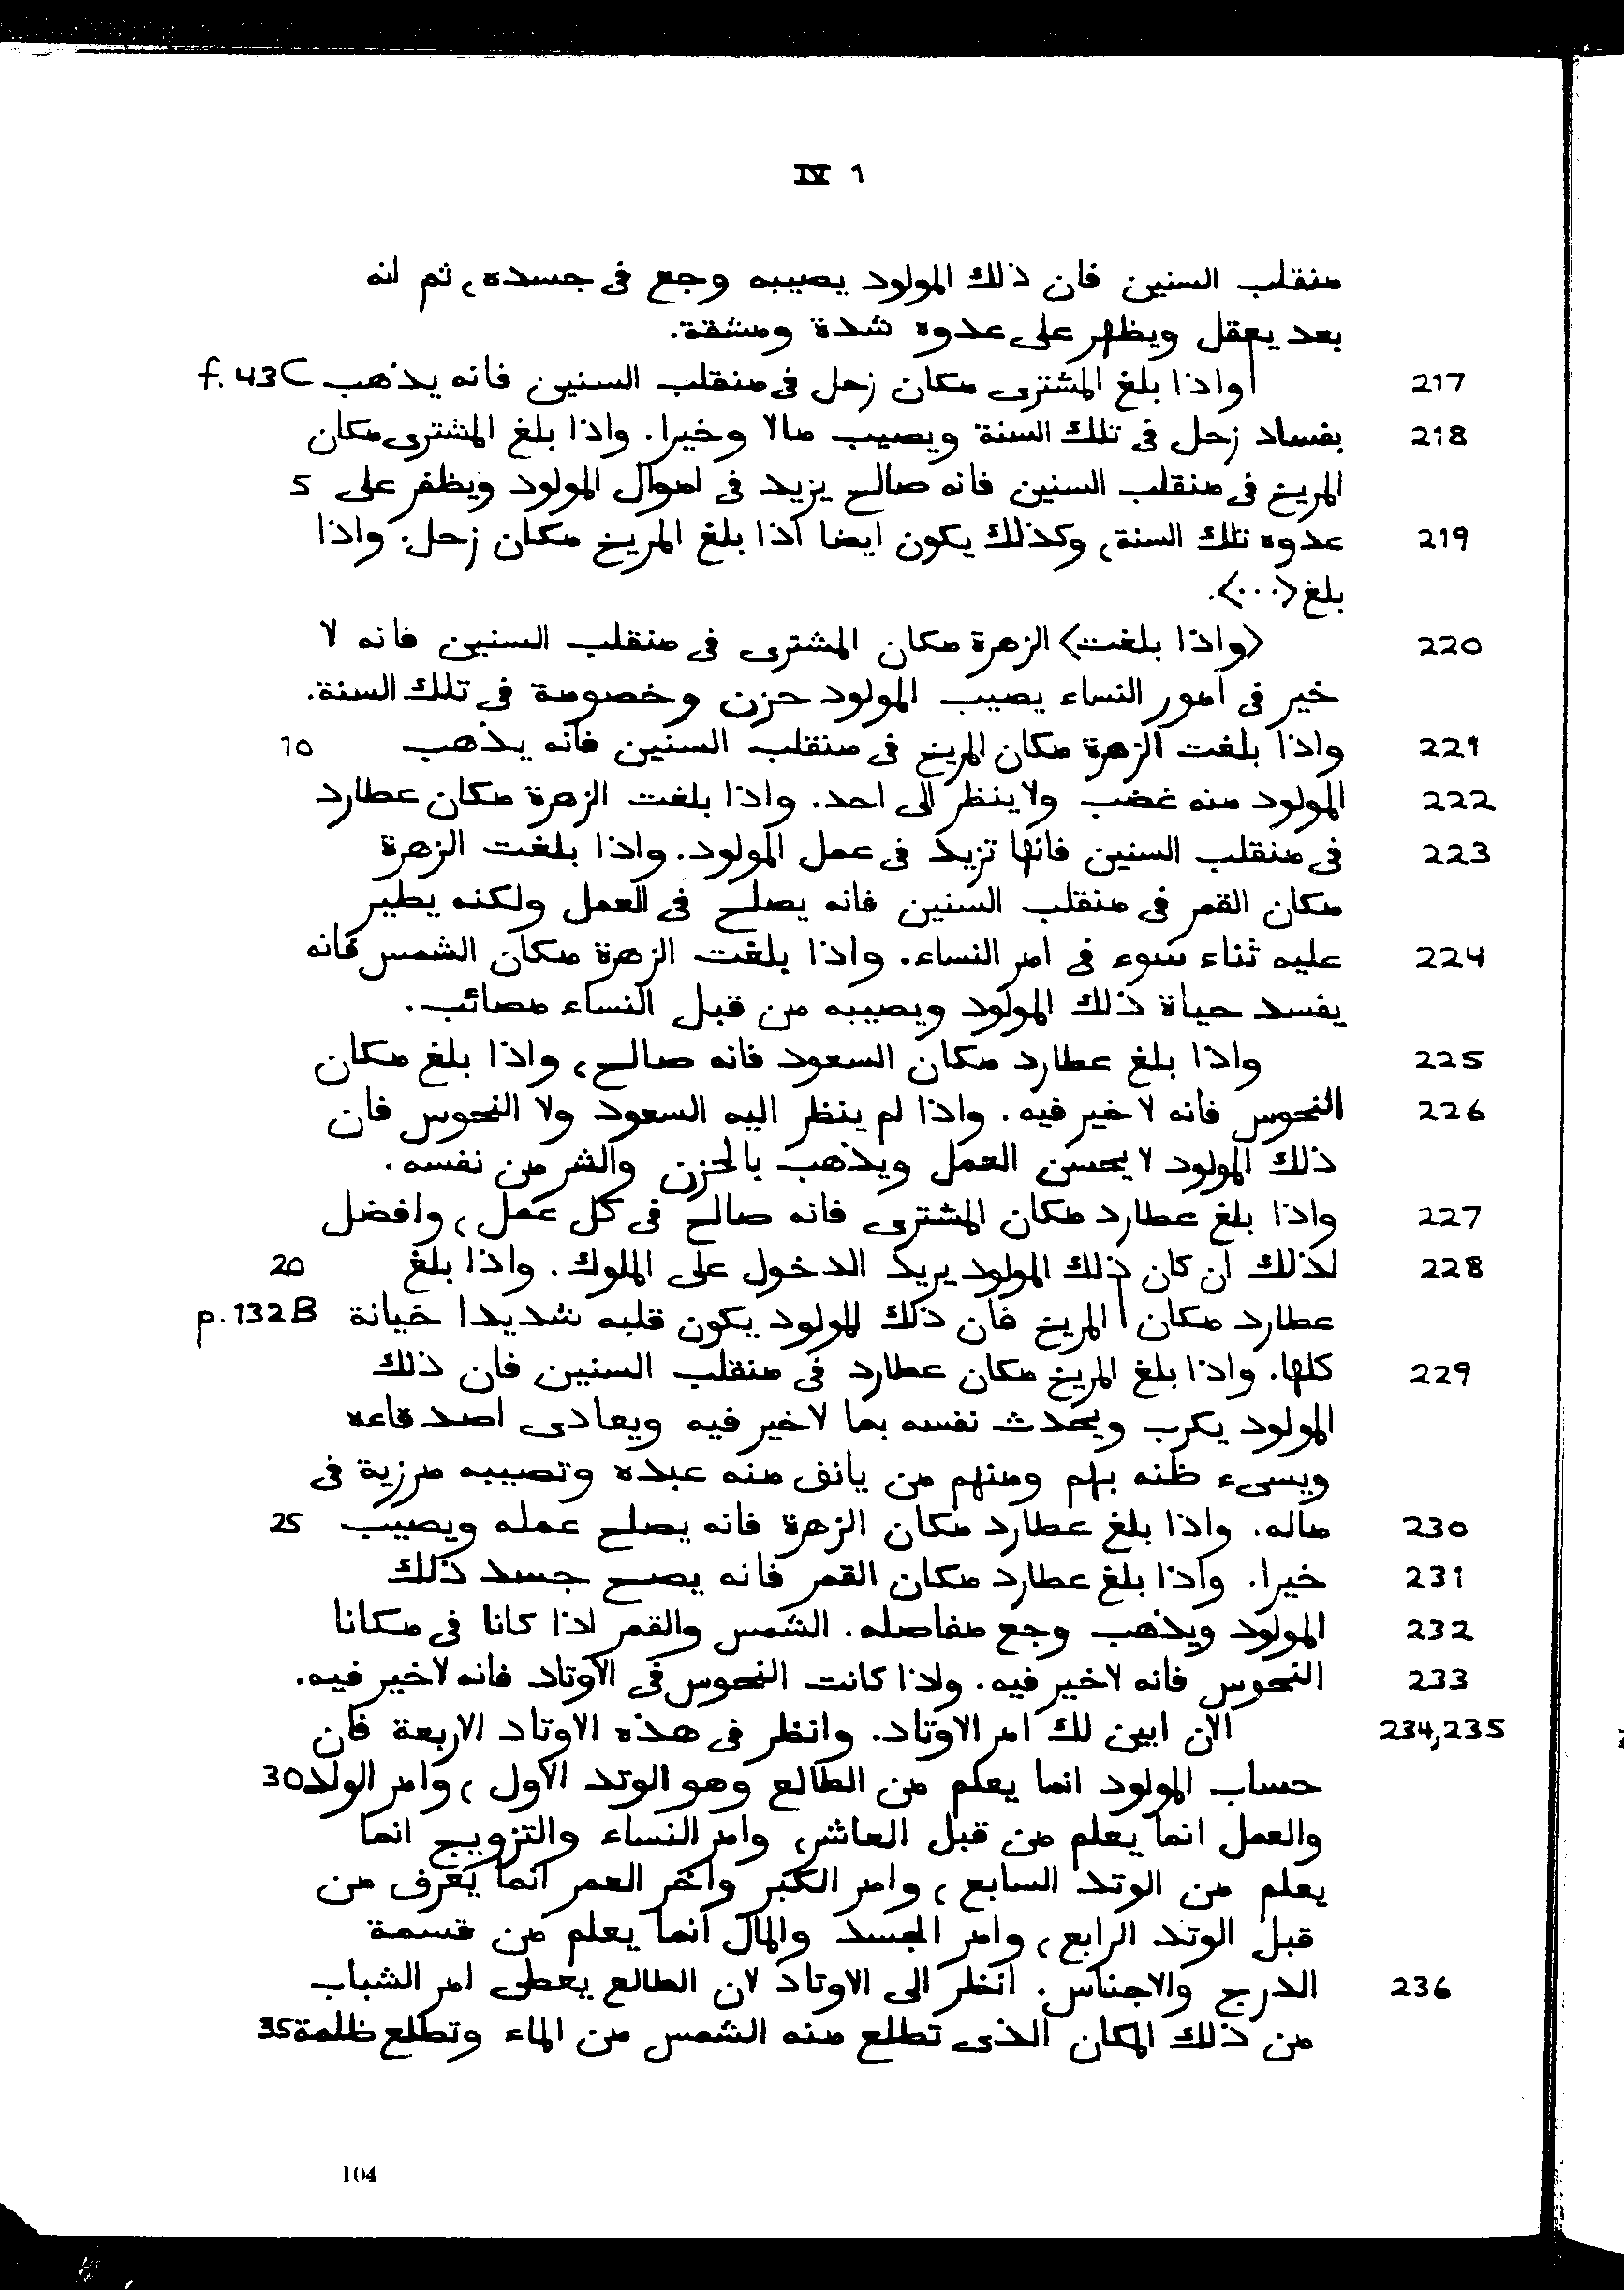 IV 1
منقلب السنين فان ذلك المولود يصيبه وجع فى جسده، ثم انه
بعد يعقل ويظهر على عدوه شدة ومشقة.
217 واذا بلغ المشترى مكان زحل فى منقلب السنين فانه يذهب f. 43C
218 بفساد زحل فى تلك السنة ويصيب مالا وخيرا. واذا بلغ المشترى مكان
المريخ فى منقلب السنين فانه صالح يزيد فى اموال المولود ويظفر على 5
219 عدوه تلك السنة، وكذلك يكون ايضا اذا بلغ المريخ مكان زحل. واذا
بلغ <...>.
220 <واذا بلغت> الزهرة مكان المشترى فى منقلب السنين فانه لا
خير فى امور النساء يصيب المولود حزن وخصومة فى تلك السنة.
221 واذا بلغت الزهرة مكان المريخ فى منقلب السنين فانه يذهب 10
222 المولود منه غضب ولا ينظر الى احد. واذا بلغت الزهرة مكان عطارد
223 فى منقلب السنين فانها تزيد فى عمل المولود. واذا بلغت الزهرة
مكان القمر فى منقلب السنين فانه يصلح فى العمل ولكنه يطير
224 عليه ثناء سوء فى امر النساء. واذا بلغت الزهرة مكان الشمس فانه
يفسد حياة ذلك المولود ويصيبه من قبل النساء مصائب.
225 واذا بلغ عطارد مكان السعود فانه صالح، واذا بلغ مكان
226 النحوس فانه لا خير فيه. واذا لم ينظر اليه السعود ولا النحوس فان
ذلك المولود لا يحسن العمل ويذهب بالحزن والشر من نفسه.
227 واذا بلغ عطارد مكان المشترى فانه صالح فى كل عمل، وافضل
228 لذلك ان كان ذلك المولود يريد الدخول على الملوك. واذا بلغ 20
عطارد مكان المريخ فان ذلك المولود يكون قلبه شديدا خيانة p. 132B
229 كلها. واذا بلغ المريخ مكان عطارد فى منقلب السنين فان ذلك
المولود يكرب ويحدث نفسه بما لا خير فيه ويعادى اصدقاءه
ويسىء ظنه بهم ومنهم من يانف منه عبده وتصيبه مرزية فى
230 ماله. واذا بلغ عطارد مكان الزهرة فانه يصلح عمله ويصيب 25
231 خيرا. واذا بلغ عطارد مكان القمر فانه يصح جسد ذلك
232 المولود ويذهب وجع مفاصله. الشمس والقمر اذا كانا فى مكانا
233 النحوس فانه لا خير فيه. واذا كانت النحوس فى الاوتاد فانه لا خير فيه.
234,235 الآن ابين لك امر الاوتاد. وانظر فى هذه الاوتاد الاربعة فان
حساب المولود انما يعلم من الطالع وهو الوتد الاول، وامر الولد 30
والعمل انما يعلم من قبل العاشر، وامر النساء والتزويج انما
يعلم من الوتد السابع، وامر الكبر واخر العمر انما يعرف من
قبل الوتد الرابع، وامر الجسد والمال انما يعلم من قسمة
236 الدرج والاجناس. انظر الى الاوتاد لان الطالع يعطى امر الشباب
من ذلك المكان الذى تطلع منه الشمس من الماء وتطلع ظلمة 35
104